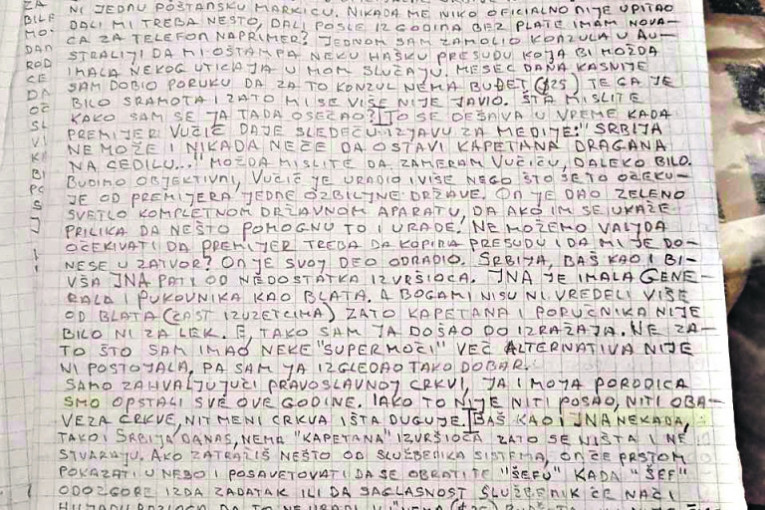 NI JEDNU POŠTANSKU MARKICU. NIKADA ME NIKO OFICIALNO NIJE UPITAO
DALI MI TREBA NEŠTO, DALI POSLE 12 GODINA BEZ PLATE IMAM NOVA-
CA ZA TELEFON NAPRIMER? JEDNOM SAM ZAMOLIO KONZULA U AU-
STRALIJI DA MI OŠTAMPA NEKU HAŠKU PRESUDU KOJA BI MOŽDA
IMALA NEKOG UTICAJA U MOM SLUČAJU. MESEC DANA KASNIJE
SAM DOBIO PORUKU DA ZA TO KONZUL NEMA BUĐET ($25) TE GA JE
BILO SRAMOTA I ZATO MI SE VIŠE NIJE JAVIO. ŠTA MISLITE
KAKO SAM SE JA TADA OSEĆAO? TO SE DEŠAVA U VREME KADA
PREMIJER VUČIĆ DAJE SLEDEĆU IZJAVU ZA MEDIJE: "SRBIJA
NE MOŽE I NIKADA NEĆE DA OSTAVI KAPETANA DRAGANA
NA CEDILU..." MOŽDA MISLITE DA ZAMERAM VUČIĆU, DALEKO BILO.
BUDIMO OBJEKTIVNI, VUČIĆ JE URADIO I VIŠE NEGO ŠTO SE TO OČEKU-
JE OD PREMIJERA JEDNE OZBILJNE DRŽAVE. ON JE DAO ZELENO
SVETLO KOMPLETNOM DRŽAVNOM APARATU, DA AKO IM SE UKAŽE
PRILIKA DA NEŠTO POMOGNU TO I URADE. NE MOŽEMO VALJDA
OČEKIVATI DA PREMIJER TREBA DA KOPIRA PRESUDU I DA MI JE DO-
NESE U ZATVOR? ON JE SVOJ DEO ODRADIO. SRBIJA, BAŠ KAO I BI-
VŠA JNA PATI OD NEDOSTATKA IZVRŠIOCA. JNA JE IMALA GENE-
RALA I PUKOVNIKA KAO BLATA. A BOGAMI NISU NI VREDELI VIŠE
OD BLATA (ČAST IZUZETCIMA) ZATO KAPETANA I PORUČNIKA NIJE
BILO NI ZA LEK. E, TAKO SAM JA DOŠAO DO IZRAŽAJA. NE ZA-
TO ŠTO SAM IMAO NEKE "SUPER MOĆI" VEĆ ALTERNATIVA NIJE
NI POSTOJALA, PA SAM JA IZGLEDAO TAKO DOBAR.
SAMO ZAHVALJUJUĆI PRAVOSLAVNOJ CRKVI, JA I MOJA PORODICA
SMO OPSTALI SVE OVE GODINE. IAKO TO NIJE NITI POSAO, NITI OBA-
VEZA CRKVE, NIT MENI CRKVA IŠTA DUGUJE. BAŠ KAO I JNA NEKADA,
TAKO I SRBIJA DANAS, NEMA "KAPETANA" IZVRŠIOCA ZATO SE NIŠTA I NE
STVARAJU. AKO ZATRAŽIŠ NEŠTO OD SLUŽBENIKA SISTEMA, ON ĆE PRSTOM
POKAZATI U NEBO I POSAVETOVATI DA SE OBRATITE "ŠEFU" KADA "ŠEF"
ODOZGORE IZDA ZADATAK ILI DA SAGLASNOST SLUŽBENIK ĆE NAĆI